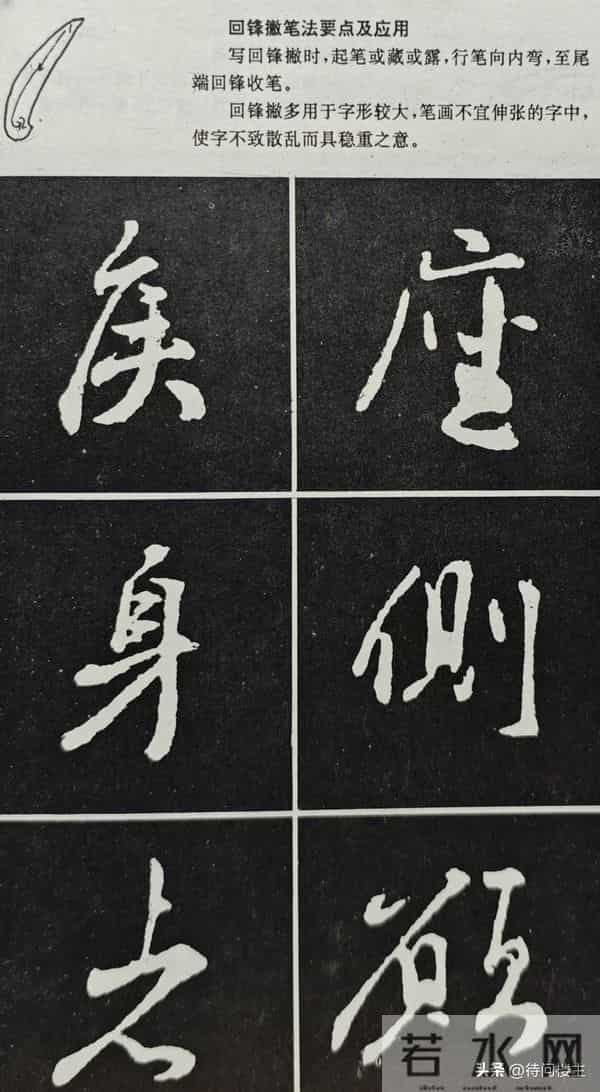 回锋撇笔法要点及应用
写回锋撇时，起笔或藏或露，行笔向内弯，至尾
端回锋收笔。
回锋撇多用于字形较大，笔画不宜伸张的字中，
使字不致散乱而具稳重之意。
座
身 側
若水网
头条 @待问楼主